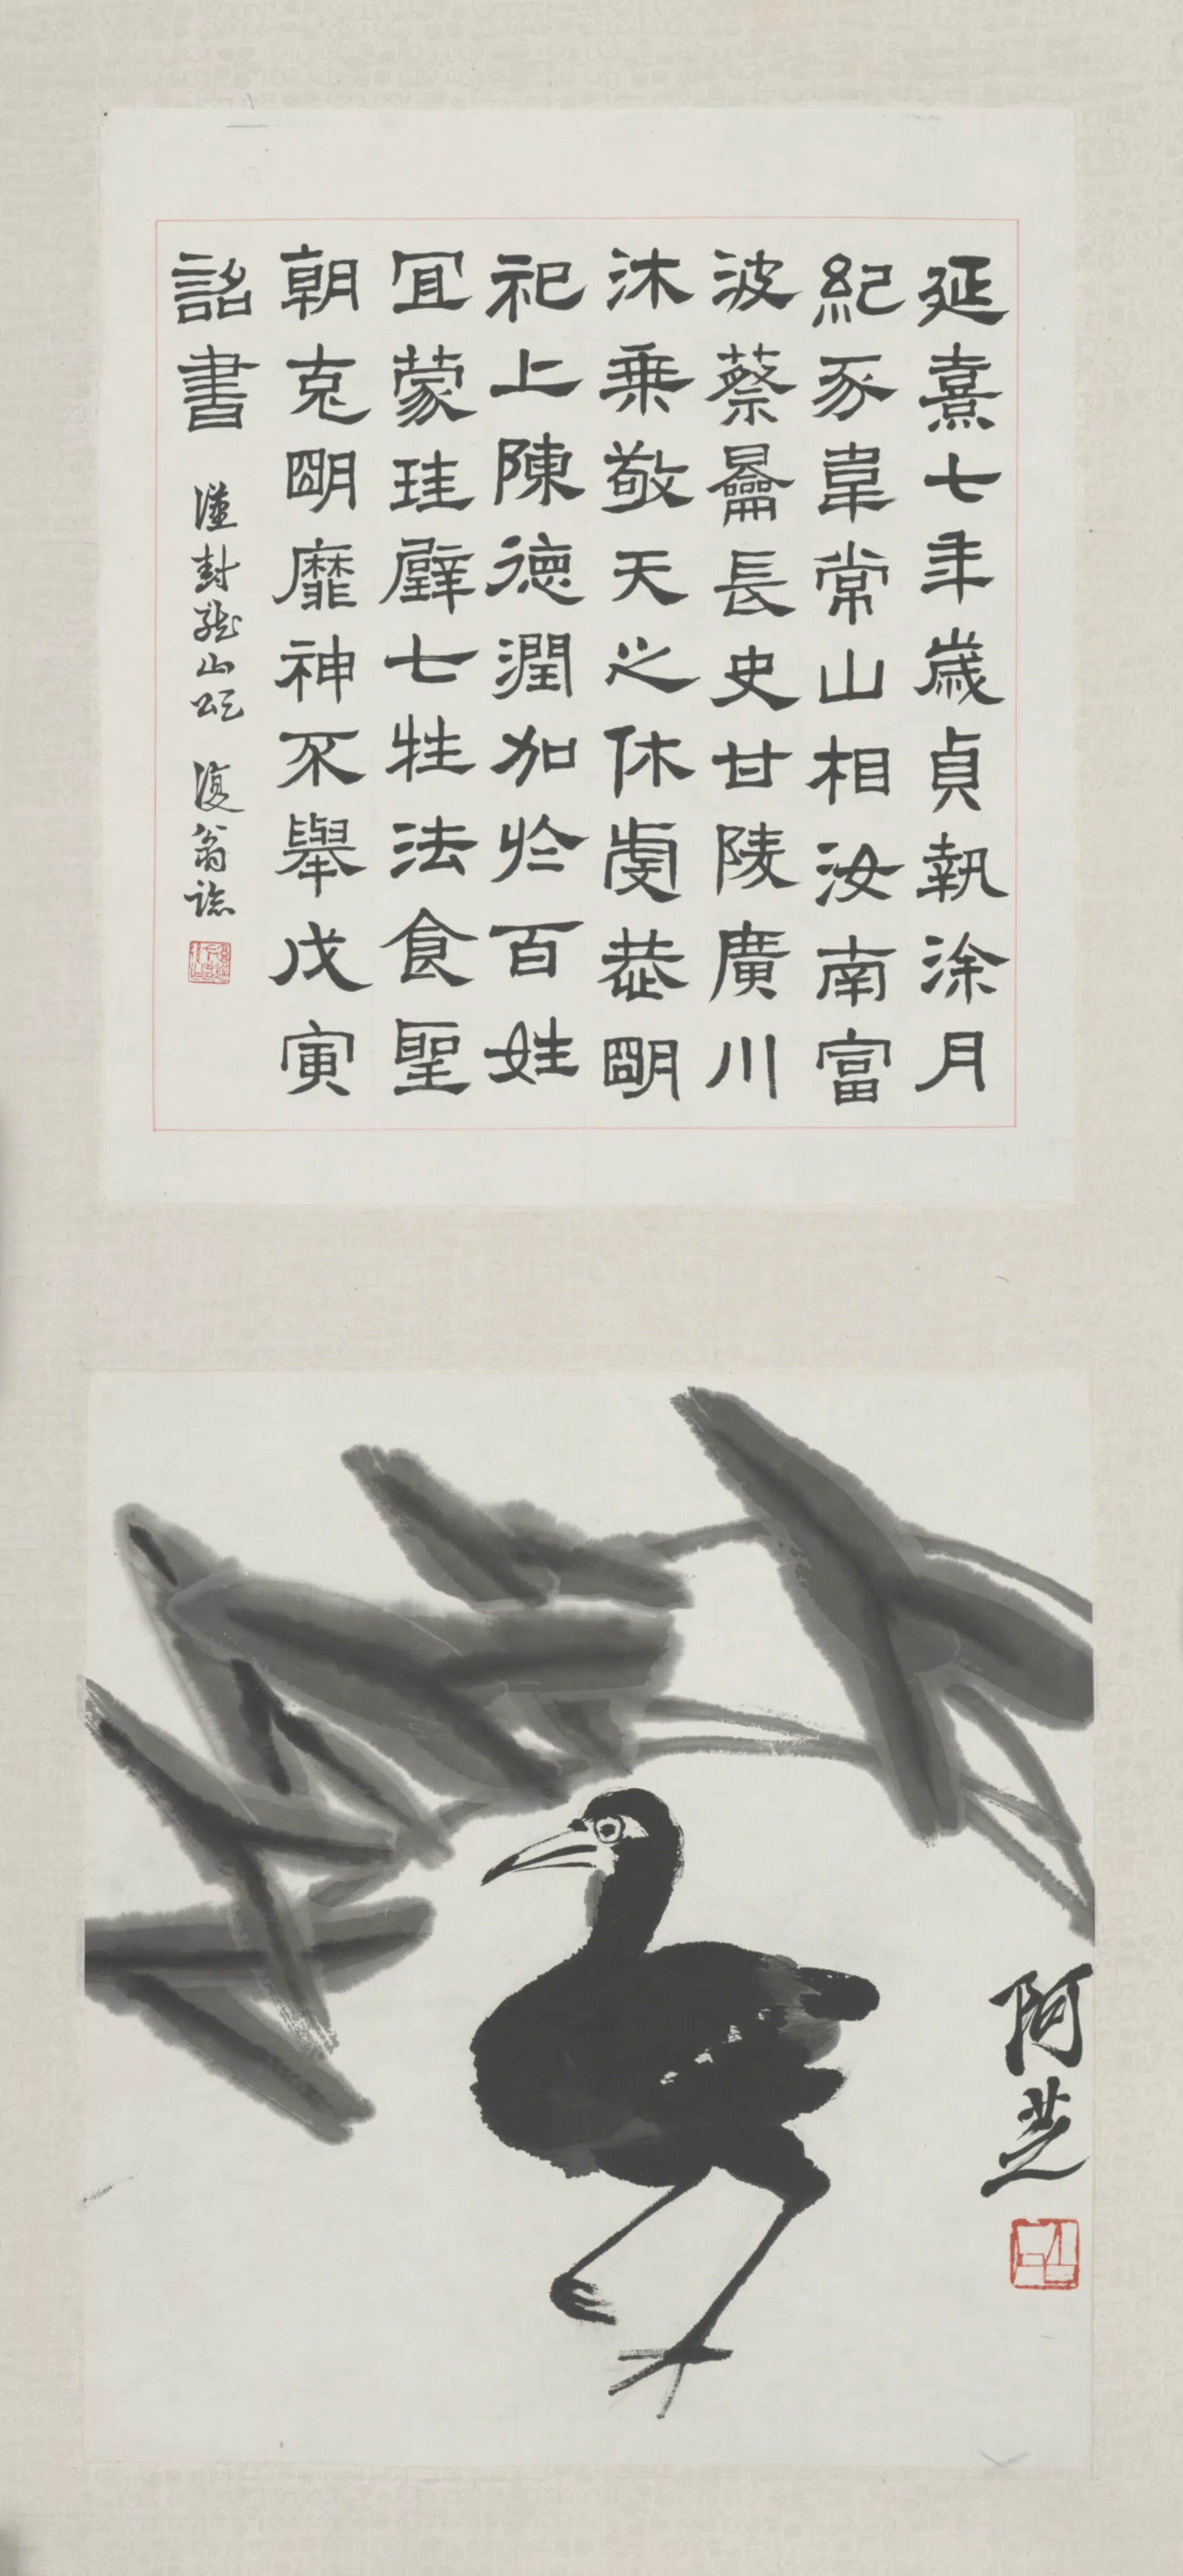 延熹七年歲貞執涂月
紀豕韋常山相汝南富
波蔡長史甘陵廣川
沐乘敬天之休虔恭明
祀上陳德潤加於百姓
宜蒙珪璧七牲法食聖
朝克明靡神不舉戊寅
詔書 漢封龍山頌 復翁
阿芝